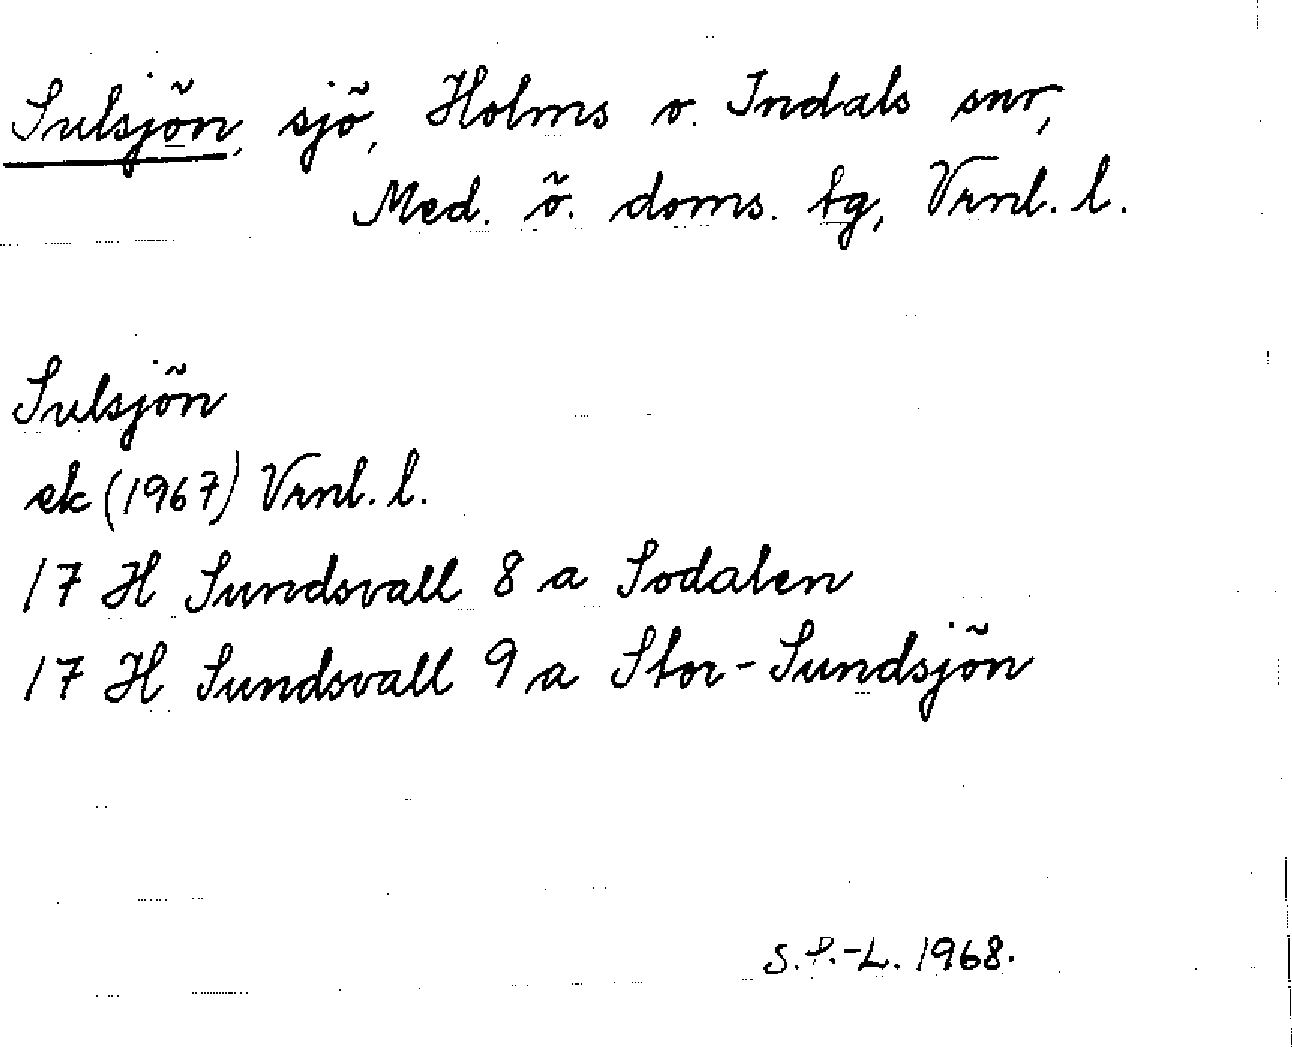 Sulsjön, sjö, Holms o. Indals snr,
Med. ö. doms. tg, Vrnl. l.
Sulsjön
ek (1967) Vrnl. l.
17 H Sundsvall 8 a Sodalen
17 H Sundsvall 9 a Stor-Sundsjön
S. S.-L. 1968.